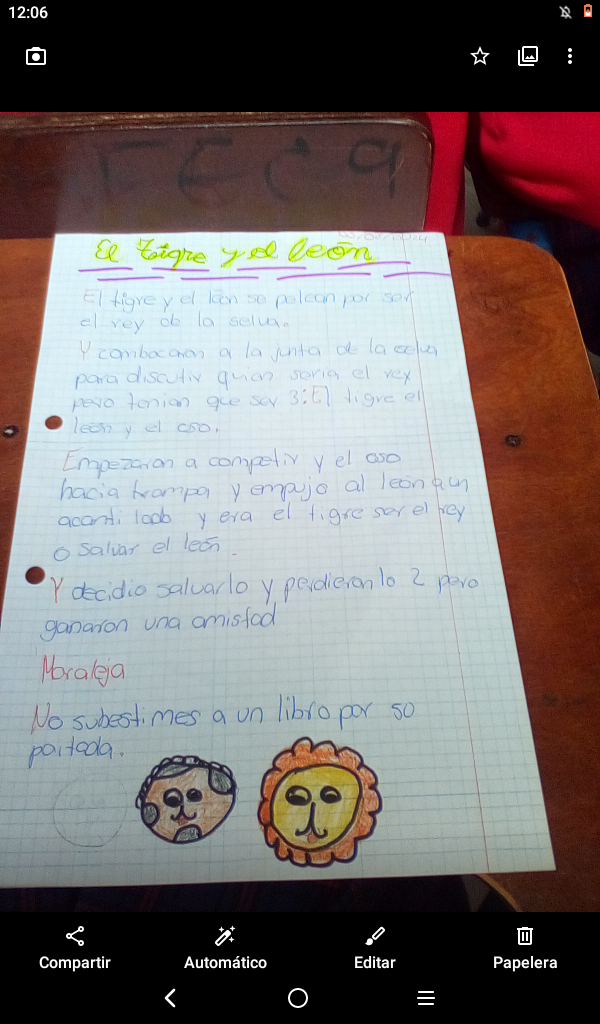 12:06
FECA
El tigre y el león
El tigre y el león se pelean por ser
el rey de la selva.
Y combocaron a la junta de la selva
para discutir quien seria el rey
pero tenian que ser 3: El tigre el
león y el oso.
Empezaron a competir y el oso
hacia trampa y empujo al león a un
acantilado y era el tigre ser el rey
o salvar el león.
Y decidio salvarlo y perdieron lo 2 pero
ganaron una amistad
Moraleja
No subestimes a un libro por so
portada.
Compartir
Automático
Editar
Papelera